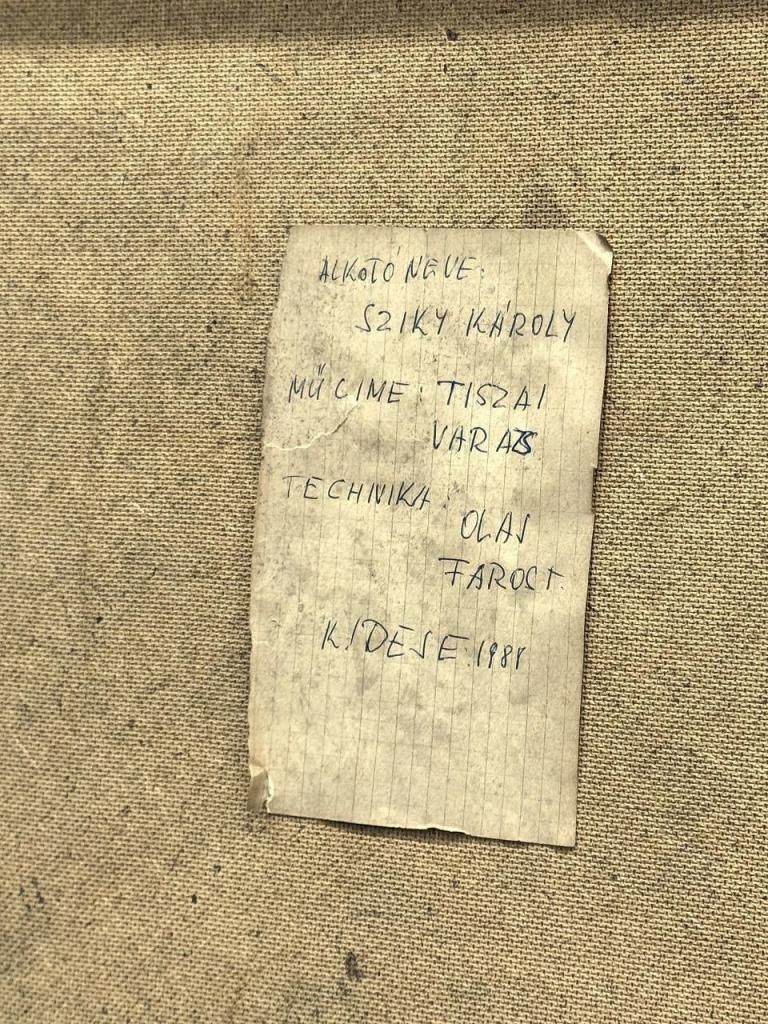 ALKOTÓ NEVE:
SZIKY KÁROLY
MŰ CIME: TISZAI
VARÁZS
TECHNIKA:
OLAJ
FAROST.
K.IDEJE:1981